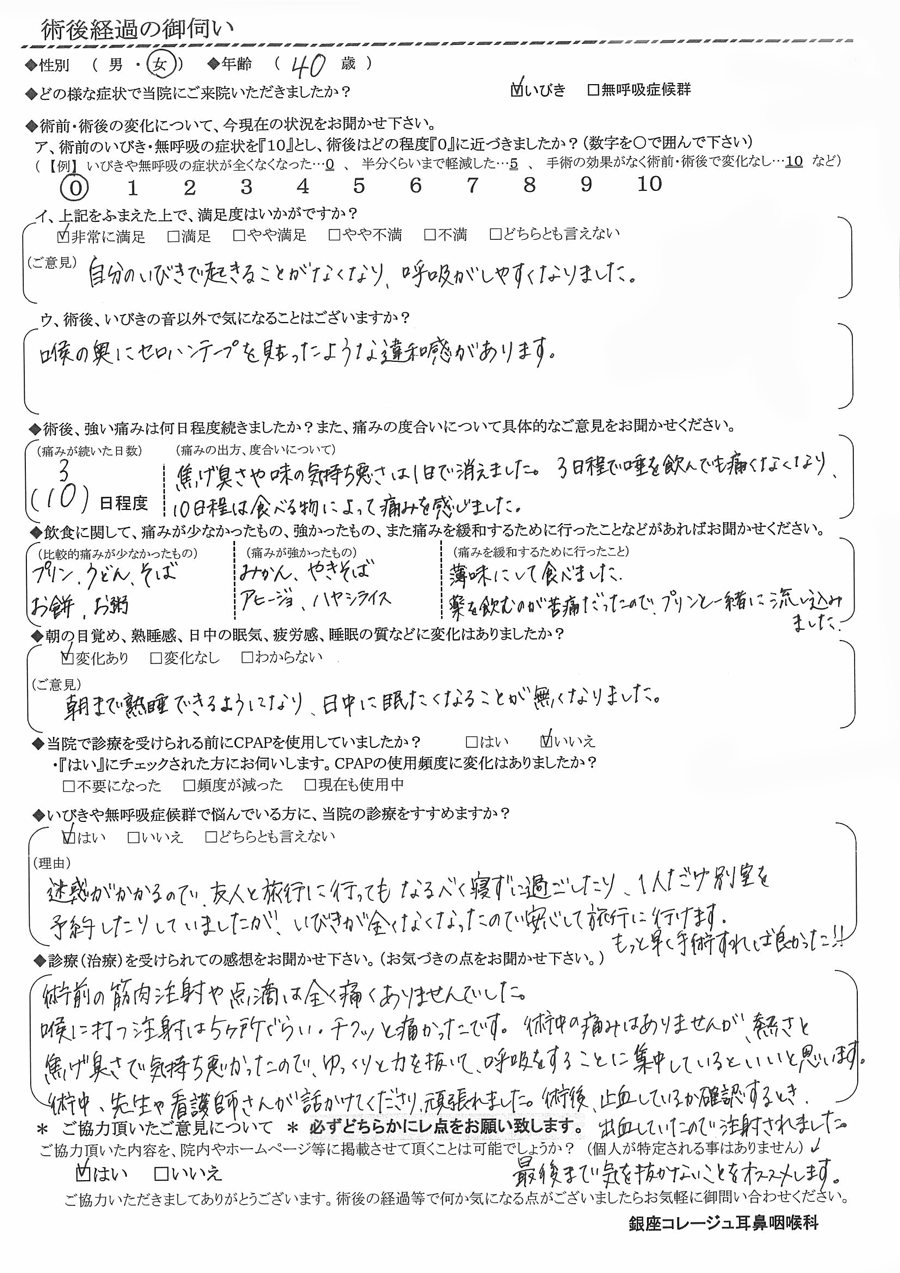 術後経過の御伺い
◆性別 （ 男 ・ 女 ） ◆年齢 （ 40 歳 ）
◆どの様な症状で当院にご来院いただきましたか？ ☑いびき □無呼吸症候群
◆術前・術後の変化について、今現在の状況をお聞かせ下さい。
ア、術前のいびき・無呼吸の症状を『10』とし、術後はどの程度『0』に近づきましたか？（数字を○で囲んで下さい）
（ 【例】 いびきや無呼吸の症状が全くなくなった…0 、 半分くらいまで軽減した…5 、 手術の効果がなく術前・術後で変化なし…10 など）
0 1 2 3 4 5 6 7 8 9 10
イ、上記をふまえた上で、満足度はいかがですか？
☑非常に満足 □満足 □やや満足 □やや不満 □不満 □どちらとも言えない
（ご意見） 自分のいびきで起きることがなくなり、呼吸がしやすくなりました。
ウ、術後、いびきの音以外で気になることはございますか？
喉の奥にセロハンテープを貼ったような違和感があります。
◆術後、強い痛みは何日程度続きましたか？また、痛みの度合いについて具体的なご意見をお聞かせください。
（痛みが続いた日数） （痛みの出方、度合いについて）
3 焦げ臭さや味の気持ち悪さは1日で消えました。 3日程で唾を飲んでも痛くなくなり、
（10） 日程度 10日程は食べる物によって痛みを感じました。
◆飲食に関して、痛みが少なかったもの、強かったもの、また痛みを緩和するために行ったことなどがあればお聞かせください。
（比較的痛みが少なかったもの） （痛みが強かったもの） （痛みを緩和するために行ったこと）
プリン、うどん、そば みかん、やきそば 薄味にして食べました。
お餅、お粥 アヒージョ、ハヤシライス 薬を飲むのが苦痛だったので、プリンと一緒に流し込み
ました。
◆朝の目覚め、熟睡感、日中の眠気、疲労感、睡眠の質などに変化はありましたか？
☑変化あり □変化なし □わからない
（ご意見）
朝まで熟睡できるようになり、日中に眠たくなることが無くなりました。
◆当院で診療を受けられる前にCPAPを使用していましたか？ □はい ☑いいえ
・『はい』にチェックされた方にお伺いします。CPAPの使用頻度に変化はありましたか？
□不要になった □頻度が減った □現在も使用中
◆いびきや無呼吸症候群で悩んでいる方に、当院の診療をすすめますか？
☑はい □いいえ □どちらとも言えない
（理由）
迷惑がかかるので、友人と旅行に行っても なるべく寝ずに過ごしたり、1人だけ別室を
予約したりしていましたが、いびきが全くなくなったので安心して旅行に行けます。
もっと早く手術すれば良かった!!
◆診療（治療）を受けられての感想をお聞かせ下さい。（お気づきの点をお聞かせ下さい。）
術前の筋肉注射や点滴は全く痛くありませんでした。
喉に打つ注射は5ヶ所ぐらい・チクッと痛かったです。 術中の痛みはありませんが、熱さと
焦げ臭さで気持ち悪かったので、ゆっくりと力を抜いて、呼吸をすることに集中しているといいと思います。
術中、先生や看護師さんが話かけてくださり、頑張れました。術後、止血しているか確認するとき、
＊ ご協力頂いたご意見について ＊ 必ずどちらかにレ点をお願い致します。 出血していたので注射されました。
ご協力頂いた内容を、院内やホームページ等に掲載させて頂くことは可能でしょうか？ （個人が特定される事はありません）↓
☑はい □いいえ 最後まで気を抜かないことをオススメします。
ご協力いただきましてありがとうございます。術後の経過等で何か気になる点がございましたらお気軽に御問い合わせください。
銀座コレージュ耳鼻咽喉科